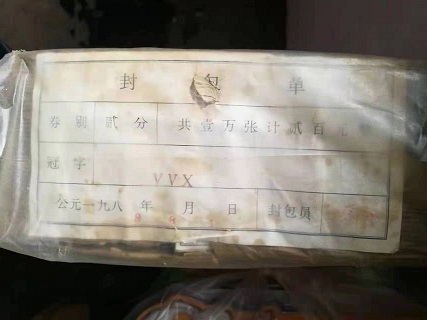 封包单
券别 贰分 共壹万张计贰百元
冠字 VVX
公元一九八 年 月 日 封包员